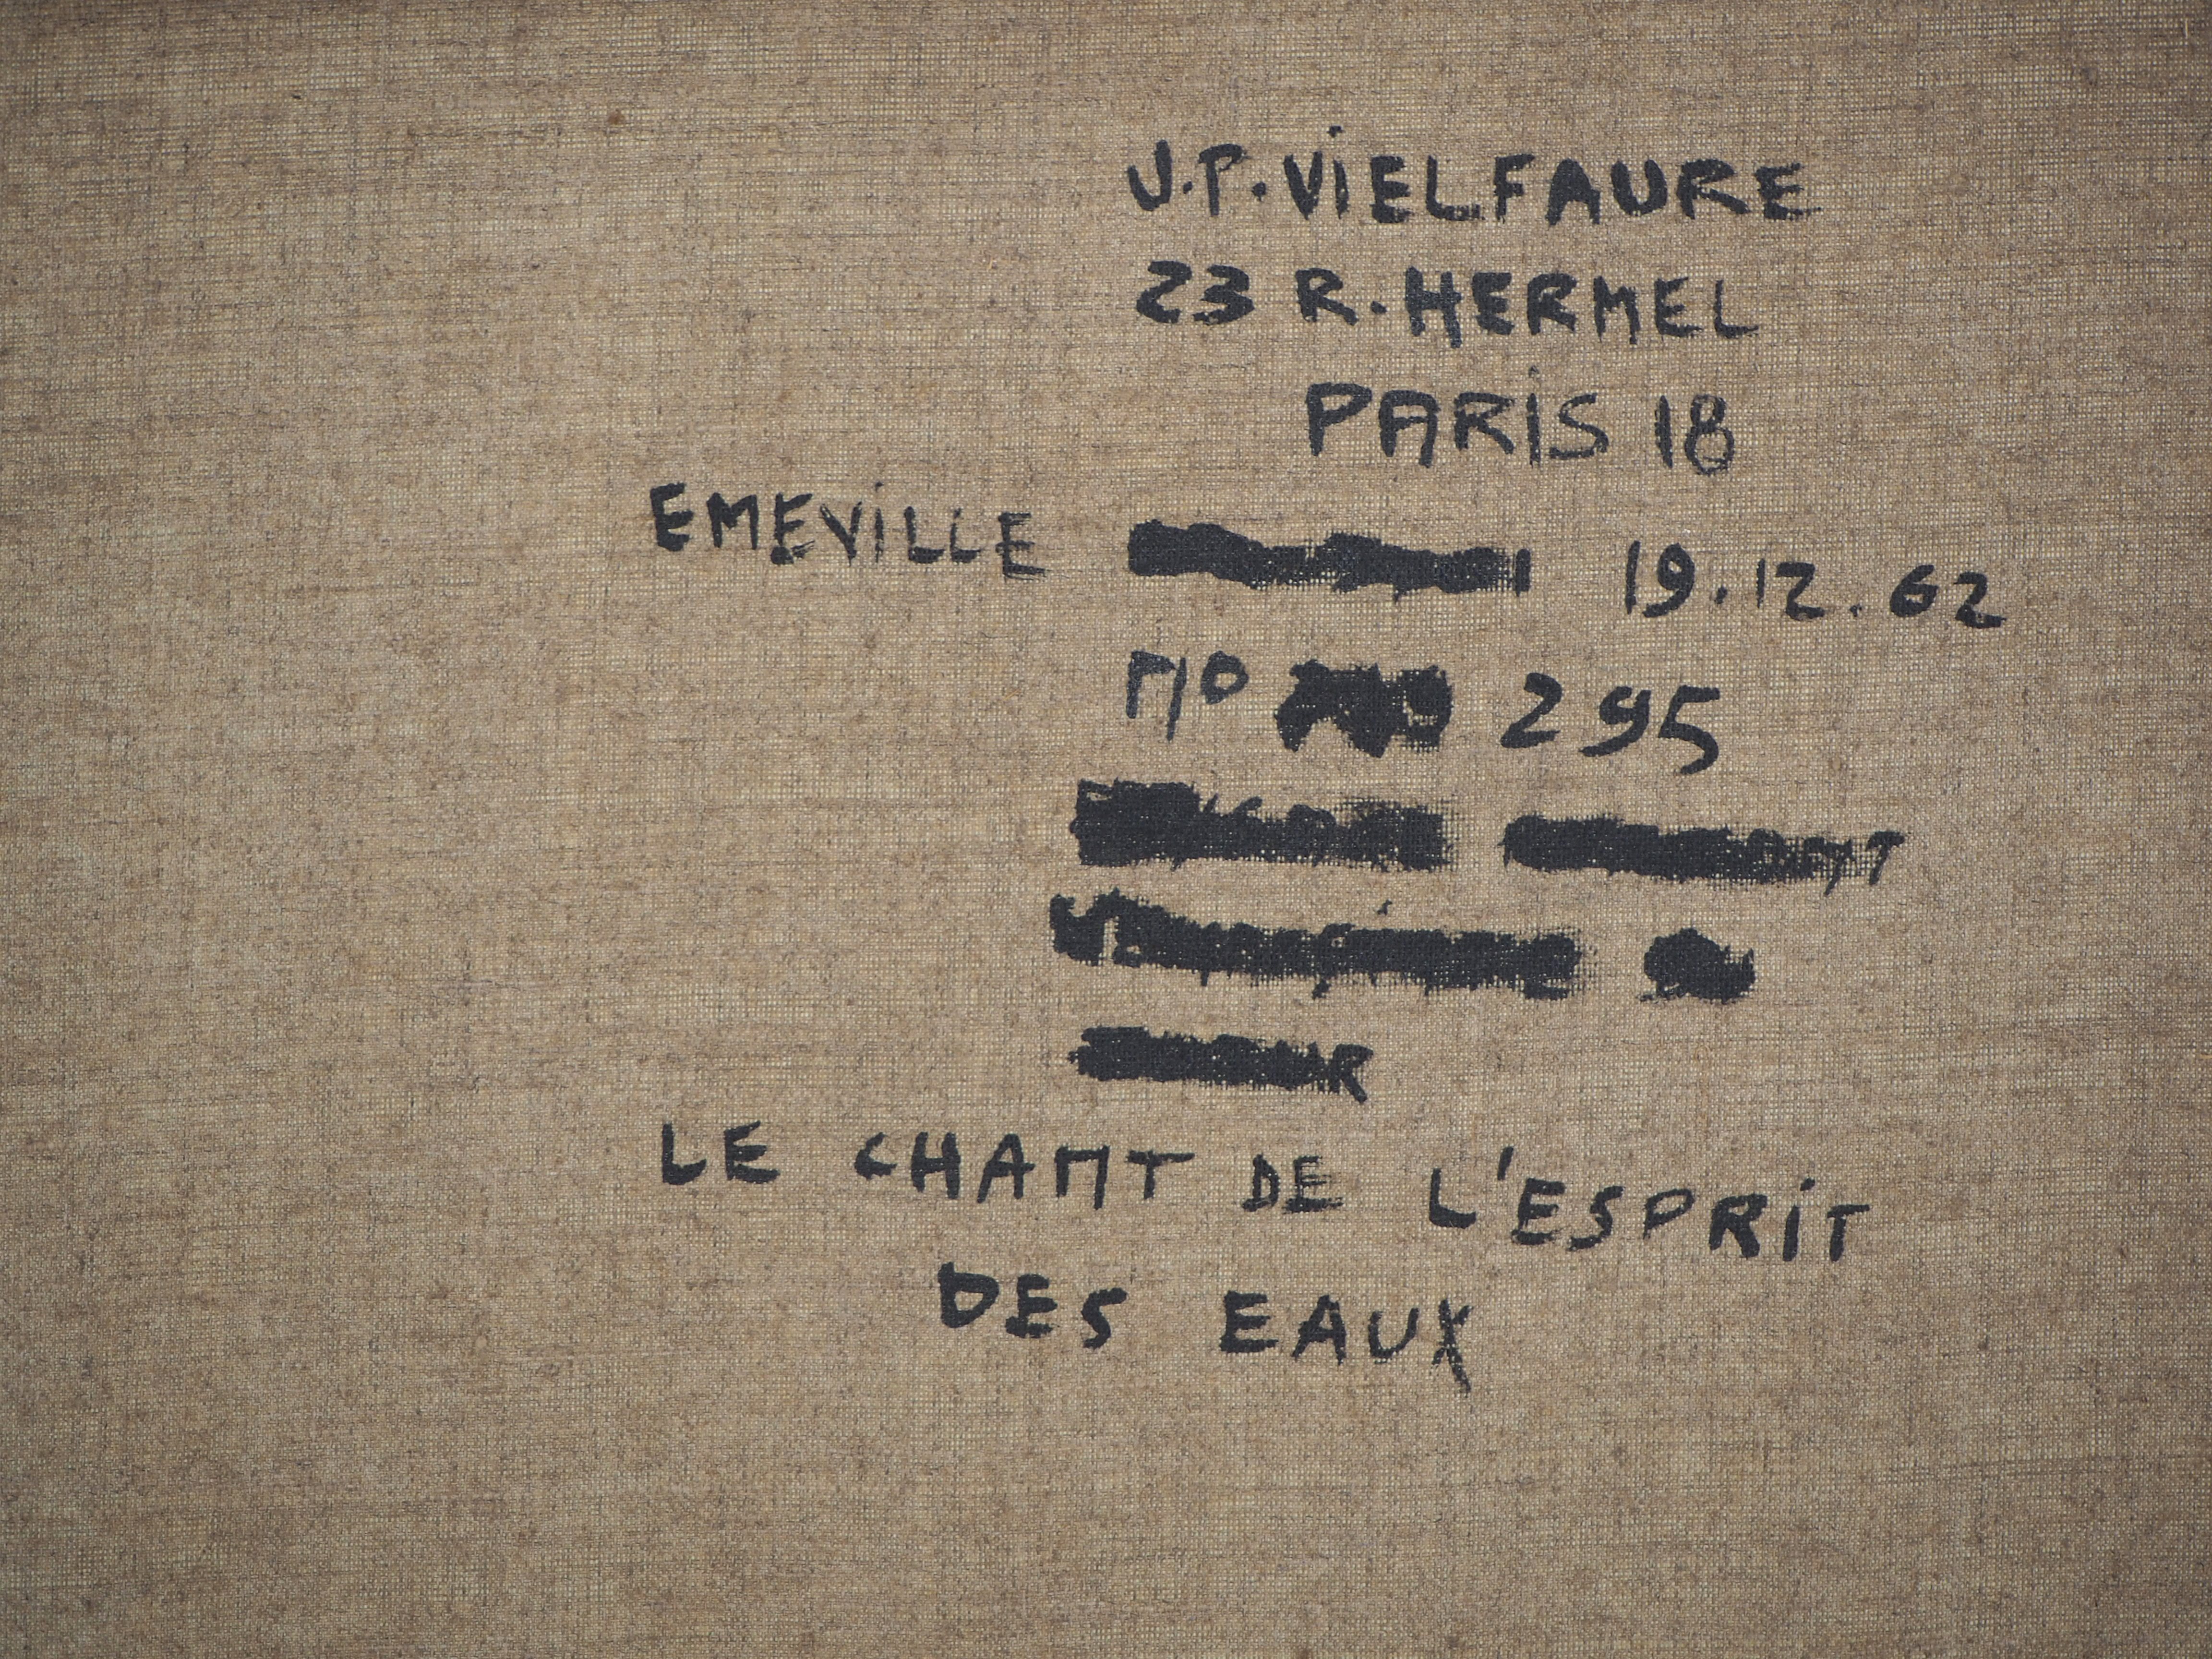 J.P. ViELFAURE
23 R. HERMEL
PARiS 18
EMEViLLE 19.12.62
No 295
LE CHANT DE L'ESPRiT
DES EAUX